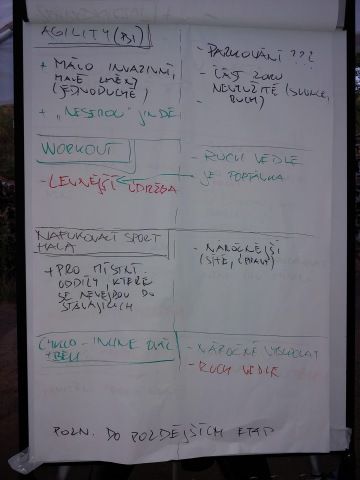 AGILITY (PSI)
+ MÁLO INVAZIVNÍ,
MALÉ
(JEDNODUCHÉ)
+ „NESEROU" JINDE
- PARKOVÁNÍ ???
- ČÁST ROKU
NEVYUŽITÉ (SLUNCE,
RUCH)
WORKOUT
- LEVNĚJŠÍ ÚDRŽBA
- RUCH VEDLE
JE POPTÁVKA
NAFUKOVACÍ SPORT
HALA
+ PRO MÍSTNÍ
ODDÍLY, KTERÉ
SE NEVEJDOU DO
STÁVAJÍCÍCH
- NÁROČNĚJŠÍ
(SÍTĚ,
CYKLO - INLINE
+ BĚH
- NÁROČNÉ
- RUCH VEDLE
POZN. DO POZDĚJŠÍCH ETAP